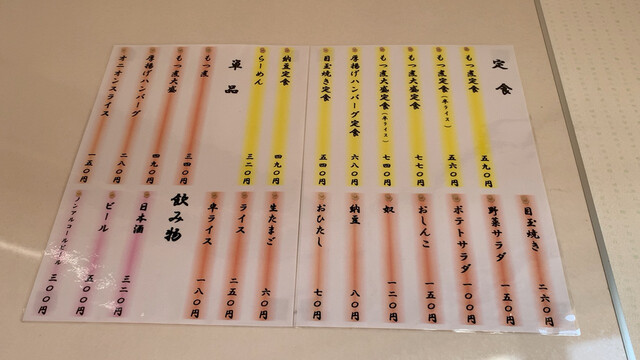 定食
もつ煮定食 五九〇円
もつ煮定食（半ライス） 五六〇円
もつ煮大盛定食 七七〇円
もつ煮大盛定食（半ライス） 七四〇円
厚揚げハンバーグ定食 六八〇円
目玉焼き定食 五四〇円
納豆定食 四九〇円
らーめん 三二〇円
単品
もつ煮 三四〇円
もつ煮大盛 四九〇円
厚揚げハンバーグ 二八〇円
オニオンスライス 一五〇円
目玉焼き 二六〇円
野菜サラダ 一五〇円
ポテトサラダ 一〇〇円
おしんこ 一五〇円
奴 一二〇円
納豆 八〇円
おひたし 七〇円
生たまご 六〇円
ライス 二五〇円
半ライス 一八〇円
飲み物
日本酒 三二〇円
ビール 五〇〇円
ノンアルコールビール 三〇〇円